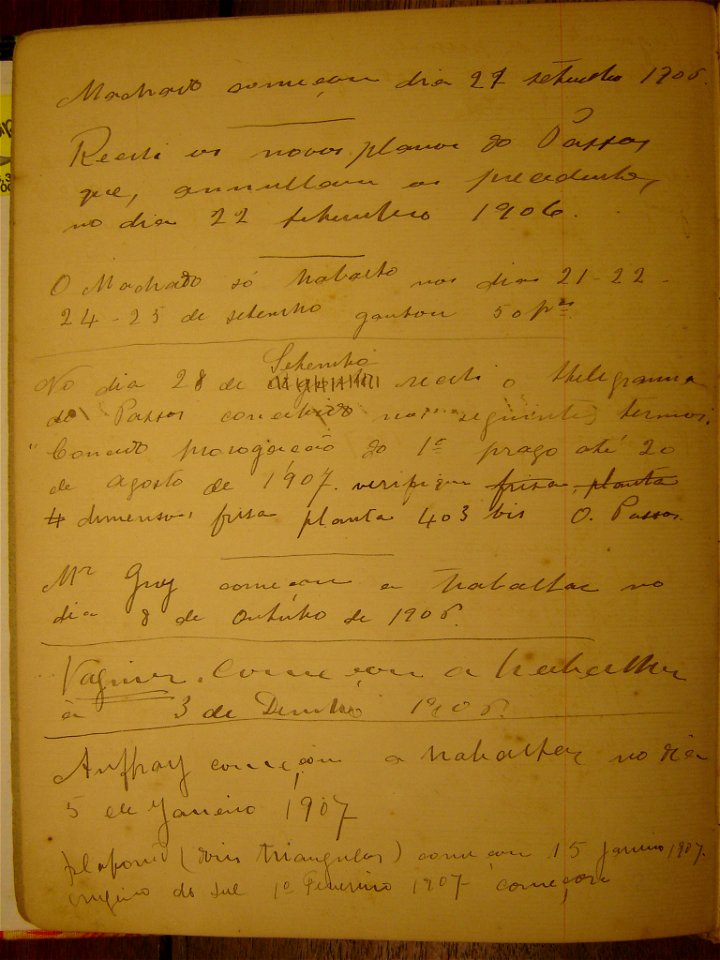 Machado começou dia 27 setembro 1906.
Recebi os novos planos do Passos
que, annullam os precedentes,
no dia 22 setembro 1906.
O Machado só trabalho nos dias 21-22-
24-25 de setembro ganhou 50 frs.
Setembro
No dia 28 de recebi o thelegramma
do Passos concebido nos seguintes termos.
"Concedo prorogação do 1º prazo até 20
de agosto de 1907. verifique frisa, planta
4 dimensões frisa planta 403 bis O. Passos
Mr Guy começou a trabalhar no
dia 8 de Outubro de 1906.
Vagner. Começou a trabalhar
à 3 de Dezembro 1906.
Auffray começou a trabalhar no dia
5 de Janeiro 1907
plafond (dois triangulos) começou 15 janeiro 1907.
do sul 1º Fevereiro 1907 começou